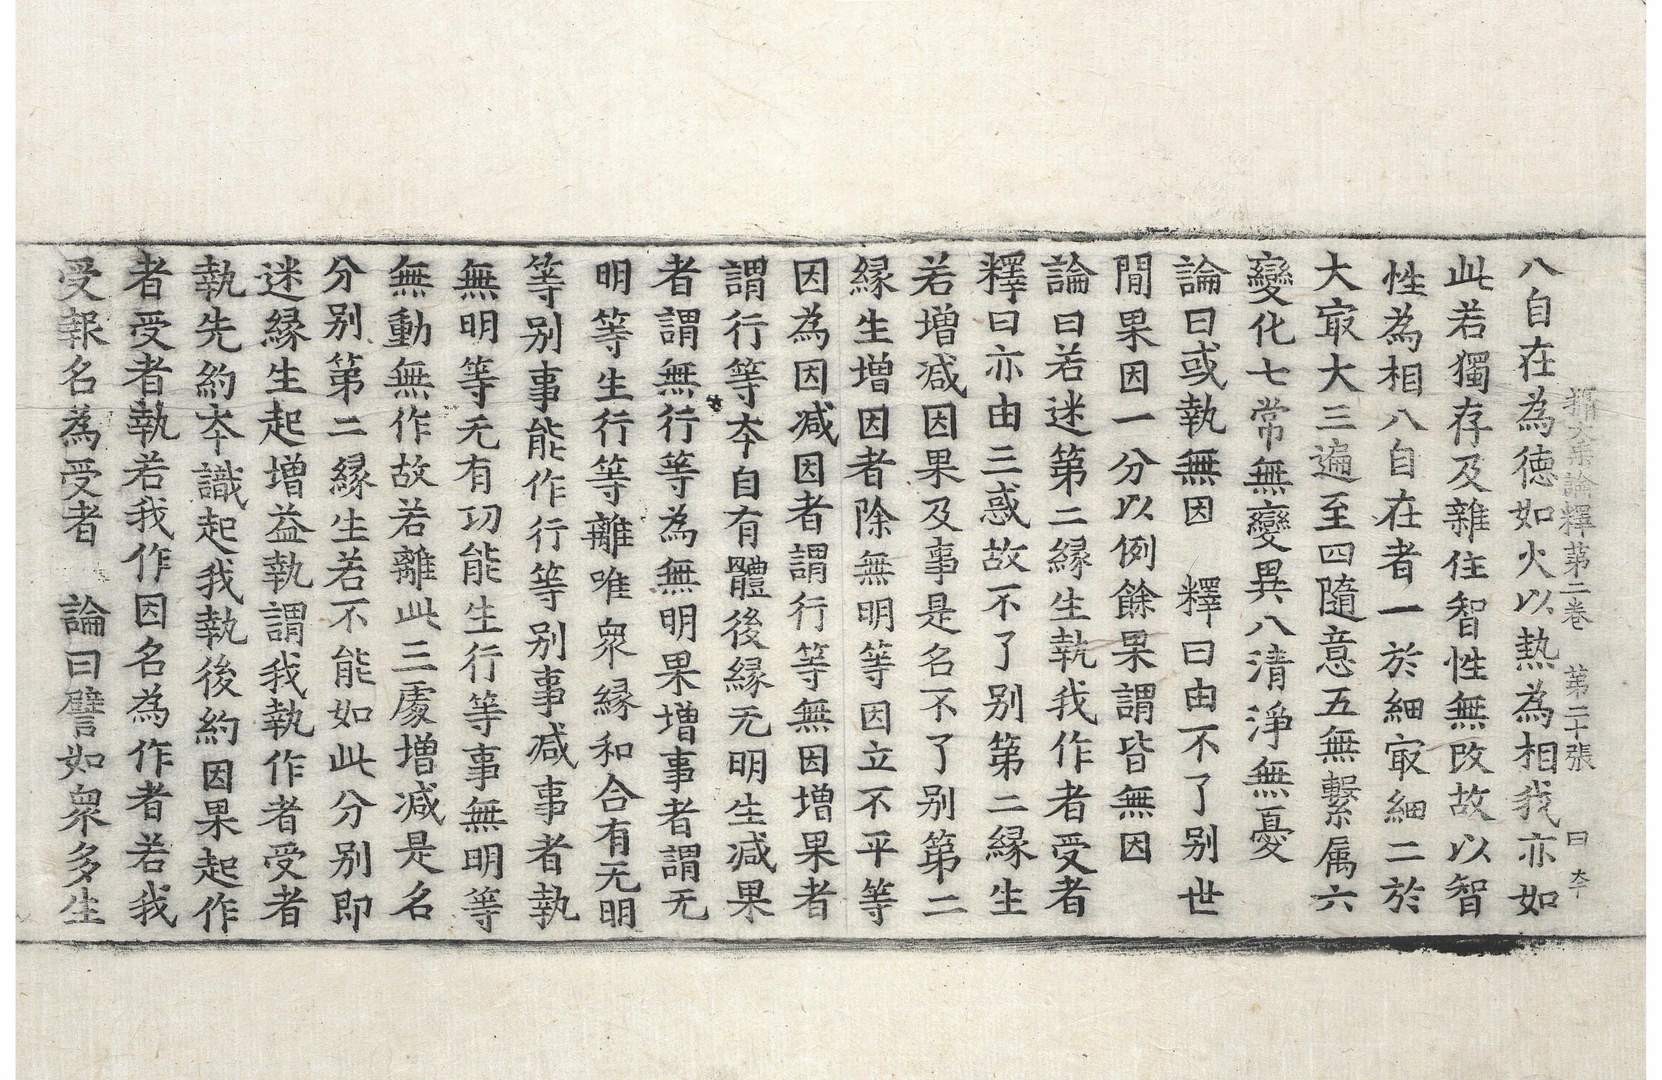 攝大乘論釋第二卷 第二十張 曰 夲
八自在為德如火以熱為相我亦如
此若獨存及雜住智性無改故以智
性為相八自在者一於細㝡細二於
大㝡大三遍至四隨意五無繫属六
變化七常無變異八清淨無憂
論曰或執無因 釋曰由不了别世
閒果因一分以例餘果謂皆無因
論曰若迷第二縁生執我作者受者
釋曰亦由三惑故不了别第二縁生
若增减因果及事是名不了别第二
縁生增因者除無明等因立不平等
因為因减因者謂行等無因增果者
謂行等夲自有體後縁无明生减果
者謂無行等為無明果增事者謂无
明等生行等離唯衆縁和合有无明
等别事能作行等别事减事者執
無明等无有功能生行等事無明等
無動無作故若離此三處增减是名
分别第二縁生若不能如此分别即
迷縁生起增益執謂我執作者受者
執先約夲識起我執後約因果起作
者受者執若我作因名為作者若我
受報名為受者 論曰譬如衆多生